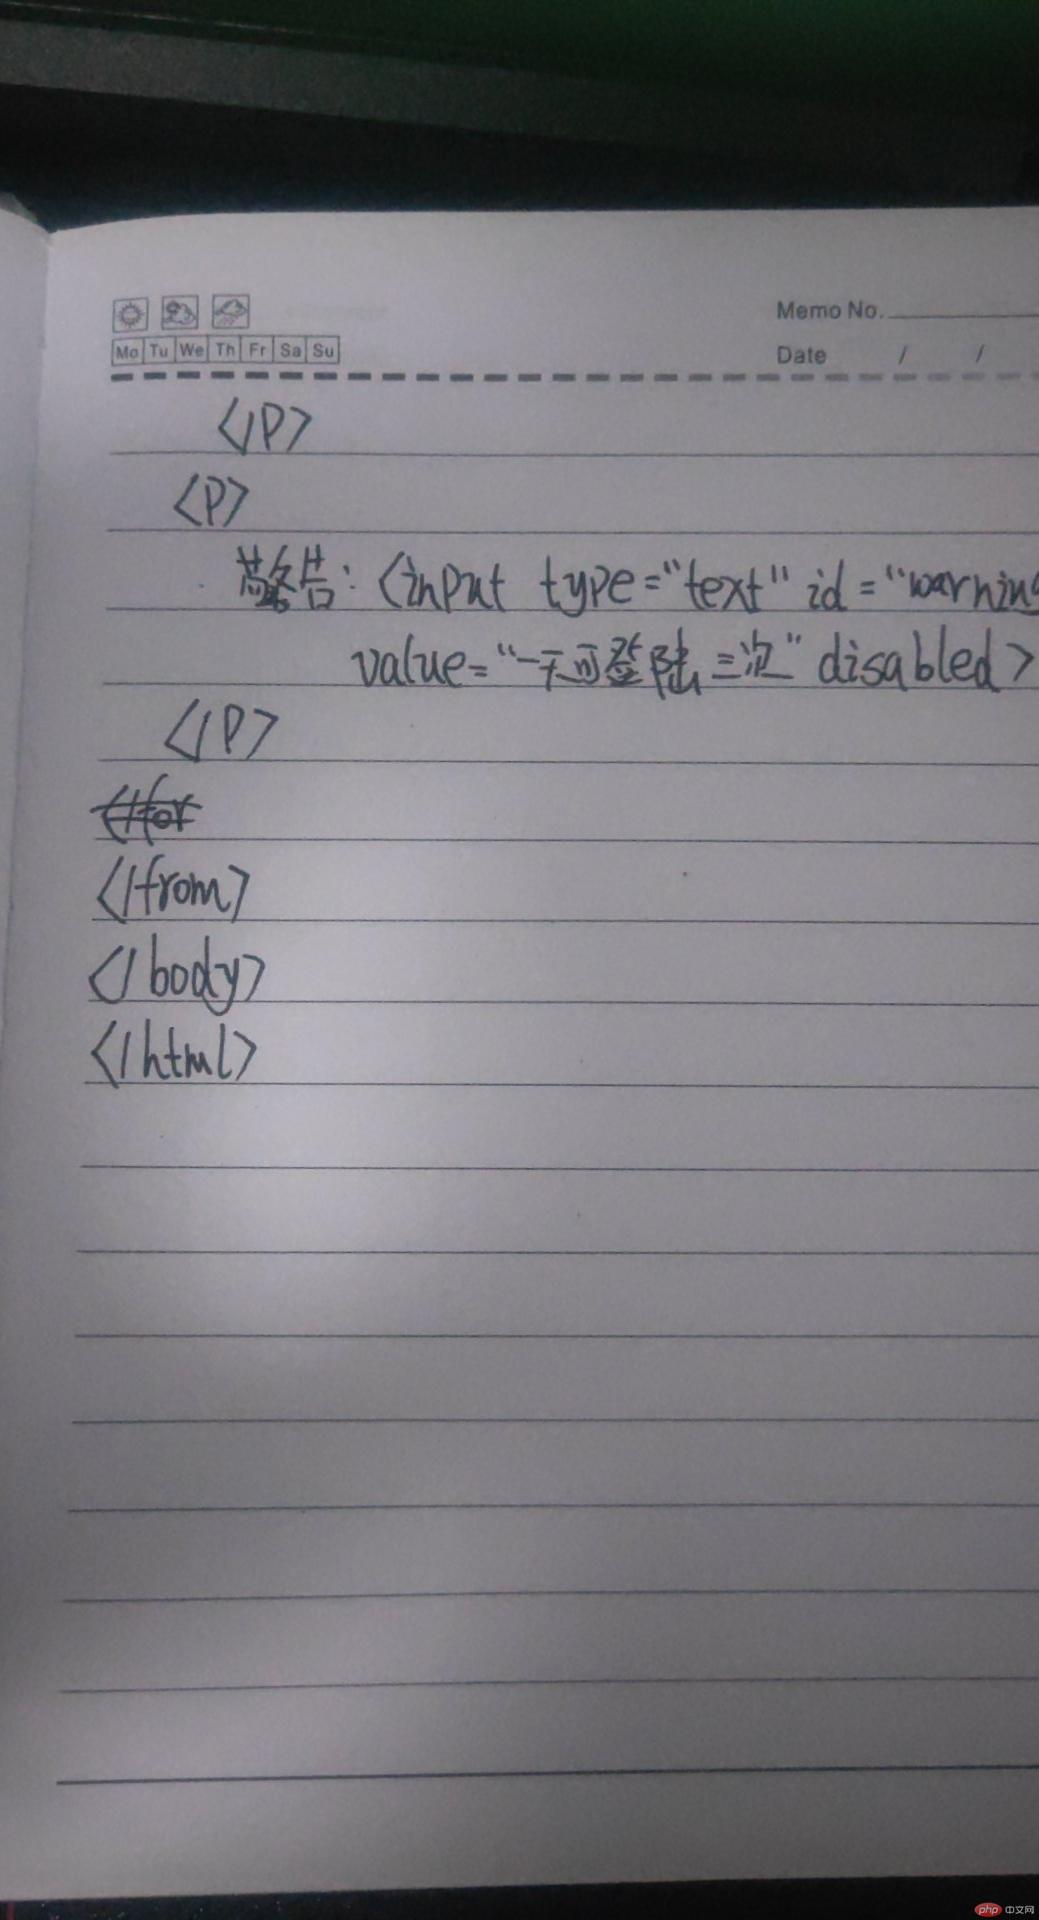 Memo No.
Mo Tu We Th Fr Sa Su
Date / /
</P>
<P>
警告: <input type="text" id="warning
value="一天可登陆三次" disabled>
</P>
</for
</from>
</body>
</html>
php 中文网